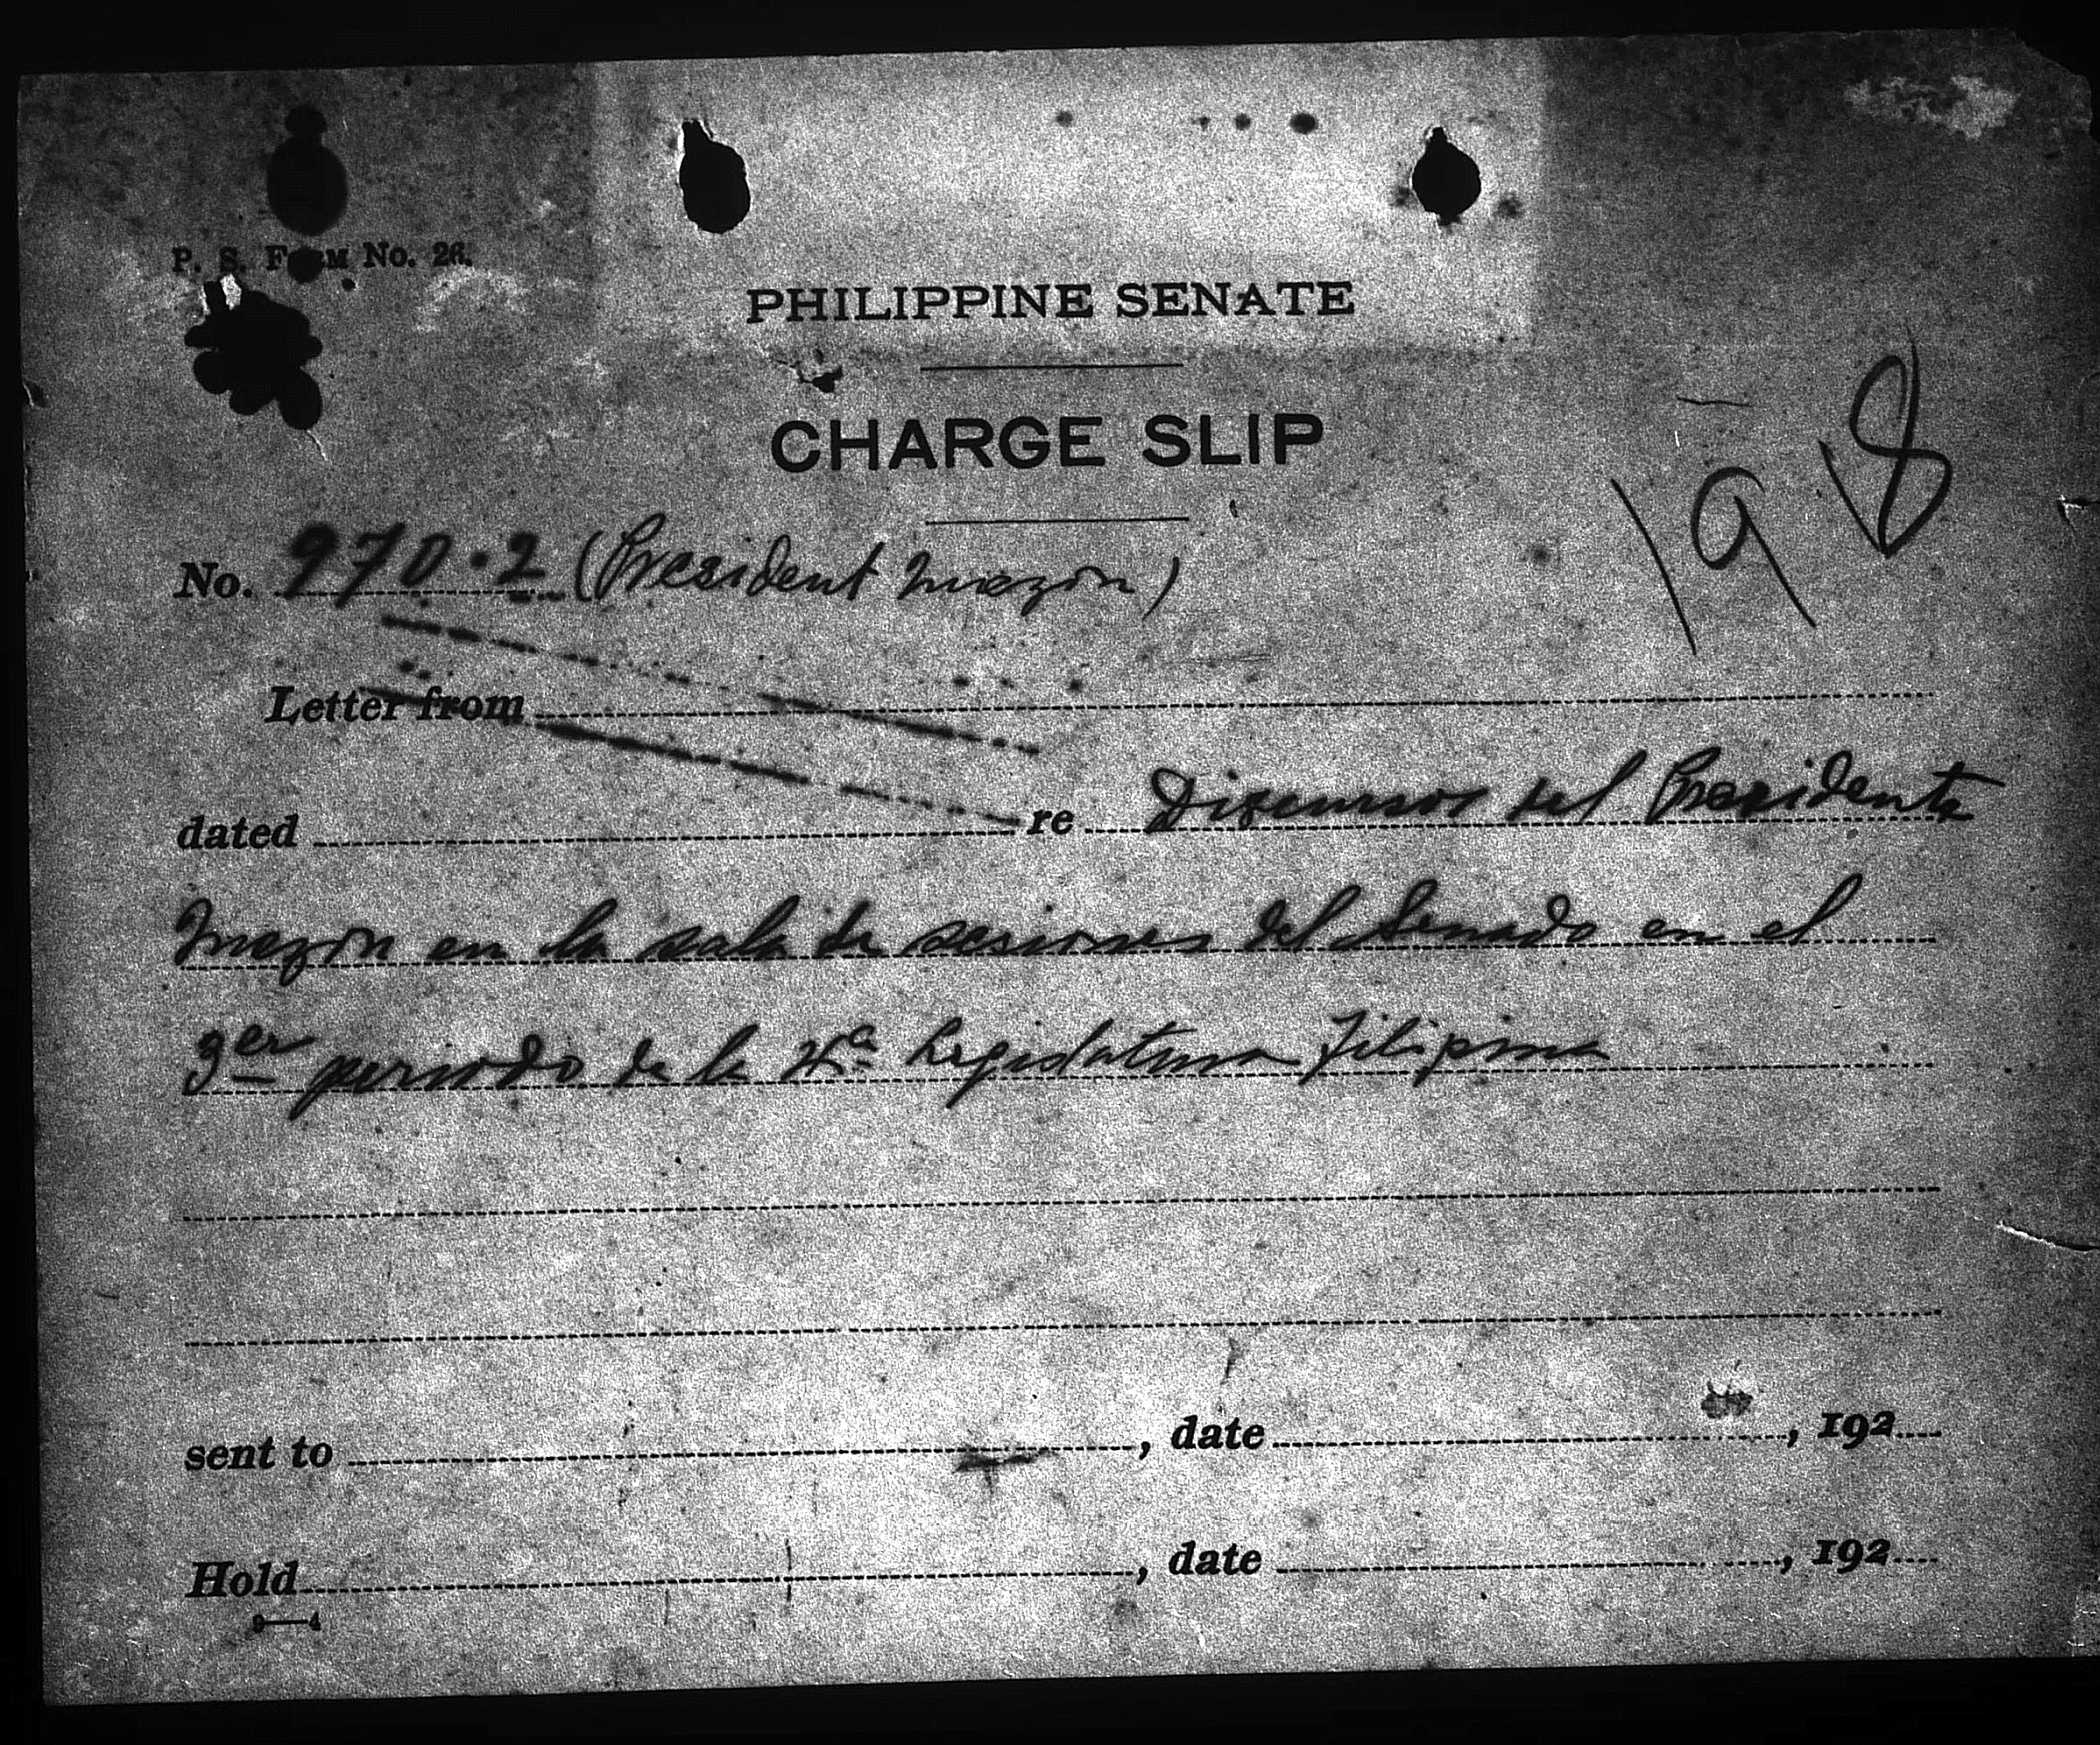 P. S. Form No. 26.
PHILIPPINE SENATE
CHARGE SLIP
198
No. 970.2 (President Quezon)
Letter from
dated re Discursos del Presidente
Quezon en la sala de sesiones del Senado en el
3er periodo de la 4a Legislatura Filipina
sent to , date , 192
Hold , date , 192
9—4